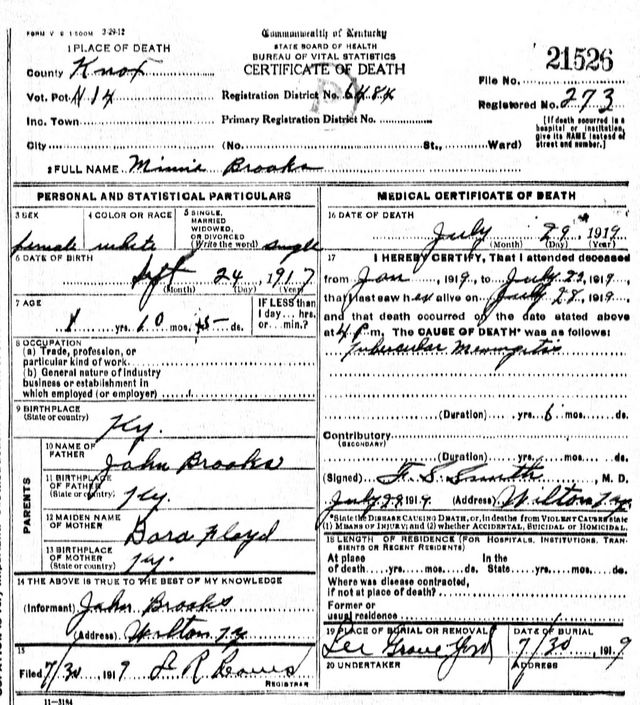 FORM V S 1 500M 3-29-12
Commonwealth of Kentucky
STATE BOARD OF HEALTH
BUREAU OF VITAL STATISTICS
CERTIFICATE OF DEATH
21526
1 PLACE OF DEATH
County Knox
File No.
Vot. Pct. # 14
Registration District No. 6484
Registered No. 273
Inc. Town
Primary Registration District No.
[If death occurred in a hospital or institution, give its NAME instead of street and number.]
City (No. St., Ward)
2 FULL NAME Minnie Brooks
PERSONAL AND STATISTICAL PARTICULARS
3 SEX
female
4 COLOR OR RACE
white
5 SINGLE, MARRIED WIDOWED, OR DIVORCED (Write the word)
single
6 DATE OF BIRTH
Sept 24, 1917
(Month) (Day) (Year)
7 AGE
1 yrs. 10 mos. ds.
IF LESS than
1 day... hrs.
or... min.?
8 OCCUPATION
(a) Trade, profession, or
particular kind of work
(b) General nature of industry
business or establishment in
which employed (or employer)
9 BIRTHPLACE
(State or country)
Ky.
PARENTS
10 NAME OF FATHER
John Brooks
11 BIRTHPLACE OF FATHER
(State or country)
Ky.
12 MAIDEN NAME OF MOTHER
Dora Floyd
13 BIRTHPLACE OF MOTHER
(State or country)
Ky.
14 THE ABOVE IS TRUE TO THE BEST OF MY KNOWLEDGE
(Informant) John Brooks
(Address) Wilton Ky
15
Filed 7/30, 1919
REGISTRAR
11-3184
MEDICAL CERTIFICATE OF DEATH
16 DATE OF DEATH
July 29 1919
(Month) (Day) (Year)
17 I HEREBY CERTIFY, That I attended deceased
from Jan, 1919, to July 1919,
that I last saw her alive on July 28, 1919,
and that death occurred of the date stated above
at 4 P.m. The CAUSE OF DEATH* was as follows:
Tubercular Meningitis
(Duration) yrs. 6 mos. ds.
Contributory
(SECONDARY)
(Duration) yrs. mos. ds.
(Signed) F. S. Smith, M. D.
July 29 1919 (Address) Wilton Ky
*State the DISEASE CAUSING DEATH, or, in deaths from VIOLENT CAUSES state
(1) MEANS OF INJURY; and (2) whether ACCIDENTAL, SUICIDAL OR HOMICIDAL.
18 LENGTH OF RESIDENCE (FOR HOSPITALS, INSTITUTIONS, TRANSIENTS OR RECENT RESIDENTS)
At place of death yrs. mos. ds. In the State yrs. mos. ds.
Where was disease contracted,
if not at place of death?
Former or
usual residence
19 PLACE OF BURIAL OR REMOVAL
Lee Grave Yard
DATE OF BURIAL
7/30, 1919
20 UNDERTAKER
ADDRESS